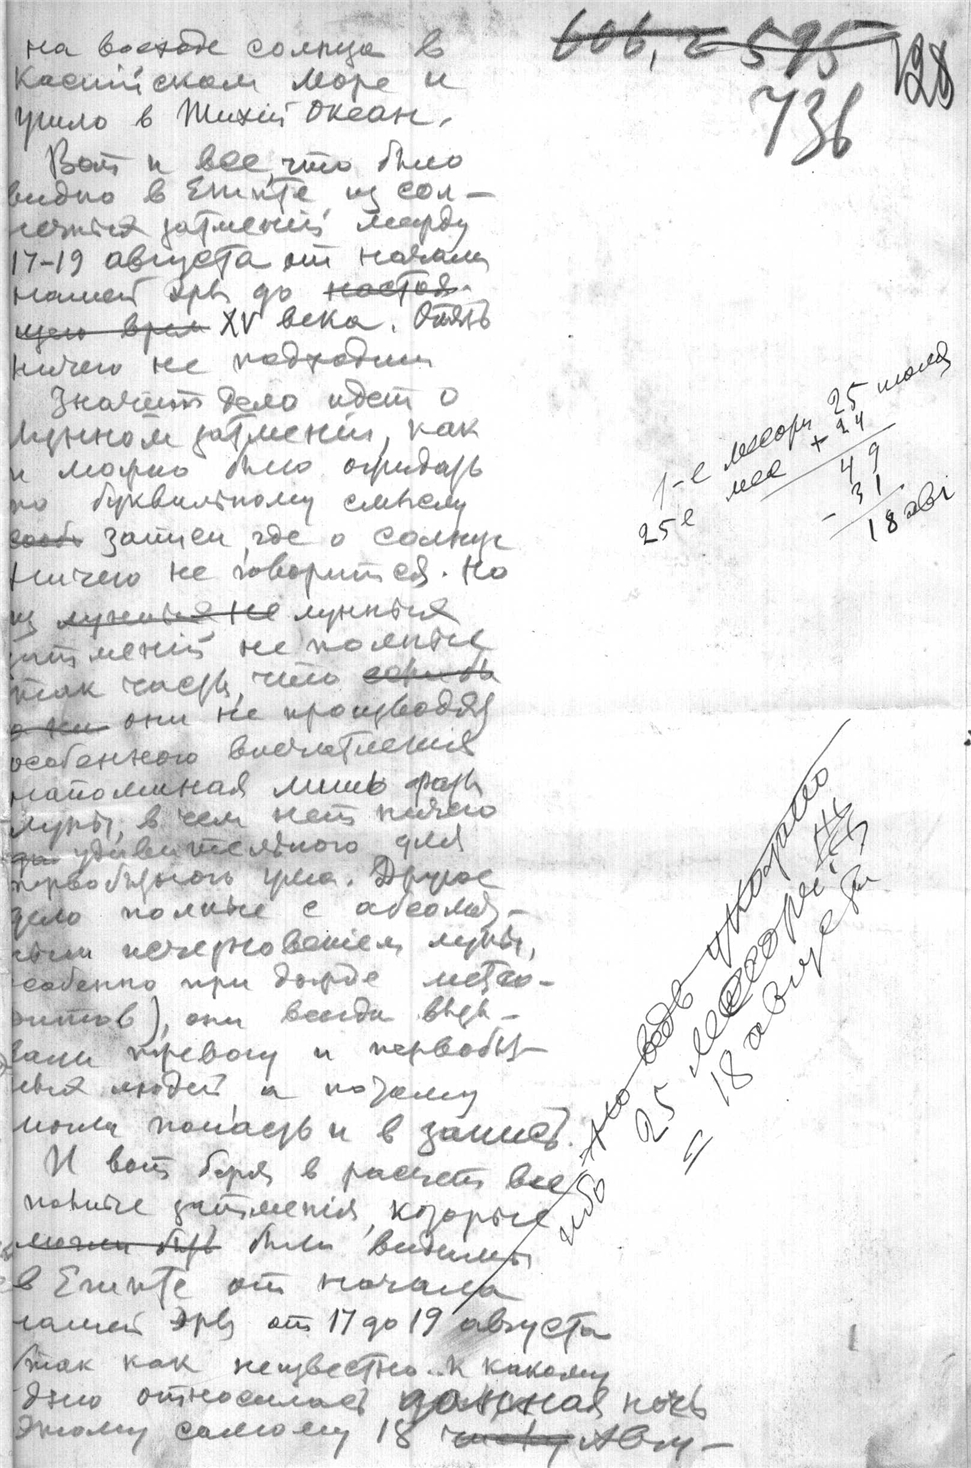 606, 595
128
736
на восходе солнца в
Каспійском море и
ушло в Тихій Океан.
Вот и все, что было
видно в Египте из сол-
нечных затменій между
17-19 августа от начала
нашей эры до настоя-
щего врем XV века. Опять
ничего не подходит
Значит дело идет о
лунном затменіи, как
и можно было ожидать
по буквальному смыслу
записи, где о солнце
ничего не говорится. Но
из лунных не лунных
затменій не полные
так часты, что
они не производят
особенного впечатленія
напоминая лишь фазы
луны, в чем нет ничего
удивительного для
первобытного ума. Другое
дело полные с абсолют-
ным исчезновеніем луны,
особенно при дожде метео-
ритов), они всегда вызы-
вали тревогу и первобыт-
ных людей, а потому
могли попасть и в запись.
И вот беря в расчет все
полные затменія, которые
могли быть были видимы
в Египте от начала
нашей эры от 17 до 19 августа
(так как неизвестно к какому
дню относилась данная ночь
этому самому 18 числу Авгу-
1-е месори 25 июля
25е мес + 24
49
- 31
18 авг
ибо
но ведь
25 месори
= 18 августа